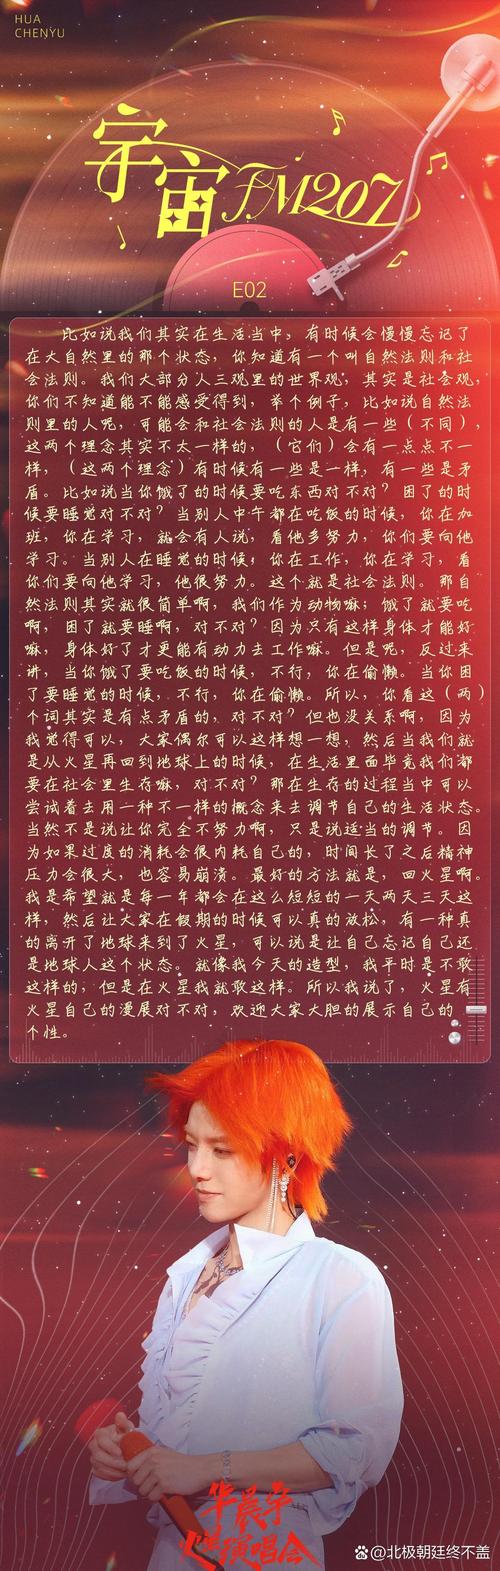 HUA
CHENYU
宇宙FM207
E02
比如说我们其实在生活当中，有时候会慢慢忘记了
在大自然里的那个状态，你知道有一个叫自然法则和社
会法则。我们大部分人三观里的世界观，其实是社会观，
你们不知道能不能感受得到，举个例子，比如说自然法
则里的人呢，可能会和社会法则的人是有一些（不同），
这两个理念其实不太一样的，（它们）会有一点点不一
样，（这两个理念）有时候有一些是一样，有一些是矛
盾。比如说当你饿了的时候要吃东西对不对？困了的时
候要睡觉对不对？当别人中午都在吃饭的时候，你在加
班，你在学习，就会有人说，看他多努力，你们要向他
学习。当别人在睡觉的时候，你在工作，你在学习，看
你们要向他学习，他很努力。这个就是社会法则。那自
然法则其实就很简单啊，我们作为动物嘛；饿了就要吃
啊，困了就要睡啊，对不对？因为只有这样身体才能好
嘛，身体好了才更能有动力去工作嘛。但是呢，反过来
讲，当你饿了要吃饭的时候，不行，你在偷懒。当你困
了要睡觉的时候，不行，你在偷懒。所以，你看这（两）
个词其实是有点矛盾的，对不对？但也没关系啊，因为
我觉得可以，大家偶尔可以这样想一想，然后当我们就
是从火星再回到地球上的时候，在生活里面毕竟我们都
要在社会里生存嘛，对不对？那在生存的过程当中可以
尝试着去用一种不一样的概念来去调节自己的生活状态。
当然不是说让你完全不努力啊，只是说适当的调节。因
为如果过度的消耗会很内耗自己的，时间长了之后精神
压力会很大，也容易崩溃。最好的方法就是，回火星啊。
我是希望就是每一年都会在这么短短的一天两天三天这
样，然后让大家在假期的时候可以真的放松，有一种真
的离开了地球来到了火星，可以说是让自己忘记自己还
是地球人这个状态。就像我今天的造型，我平时是不敢
这样的，但是在火星我就敢这样。所以我说了，火星有
火星自己的漫展对不对，欢迎大家大胆的展示自己的
个性。
华晨宇
火星演唱会
@北极朝廷终不盖